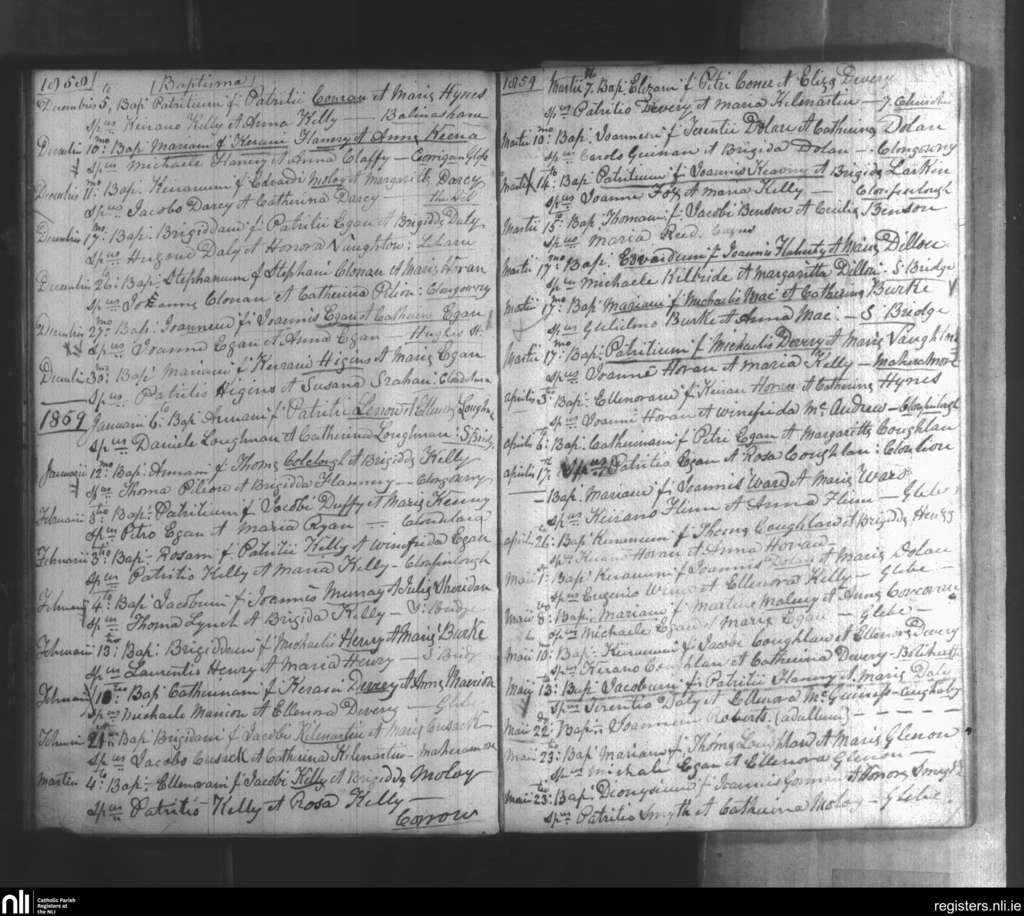 1858 Baptisma
Decembris 5, Bap. Patritium f. Patritii Conran et Mariæ Hynes
Spus Kerano Kelly et Anna Kelly — Balinasham
Decembri 10: Bap. Mariam f. Kerani Flannery et Annæ Keena
Spus Michaele Flannery et Anna Claffy — Corrigan Glass
Decembris 11: Bap. Keranum f. Edvardi Moloy et Margaritta Darcy
Spus Jacobo Darcy et Catherina Darcy — the Hill
Decembris 17: Bap. Brigidam f. Patritii Egan et Brigidæ Daly
Spus Hugone Daly et Honora Naughton:
Decembri 26: Bap. Stephanum f. Stephani Clonan et Mariæ Horan
Spus Joanne Clonan et Catherina Pilion: Clongowny
Decembri 27: Bap. Joannem f. Joannis Egan et Catherinæ Egan
Spus Joanne Egan et Anna Egan
Decembri 30: Bap. Mariam f. Kerani Higins et Mariæ Egan
Spus Patritio Higins et Susana Srahan:
1859 Januarii 6: Bap. Annam f. Patritii Lenow et Ellenoræ Loughna
Spus Daniele Loughnan et Catherina Loughnan: S Bridge
Januarii 12: Bap. Annam f. Thomæ Coleclough et Brigidæ Kelly
Spus Thoma Pilion et Brigidda Flannery — Clongowny
Februarii 3: Bap. Patritium f. Jacobi Duffy et Mariæ Kenny
Spus Petro Egan et Maria Ryan —
Februarii 3: Bap. Rosam f. Patritii Kelly et Winefrida Egan
Spus Patritio Kelly et Maria Kelly —
Februarii 4: Bap. Jacobum f. Joannis Murray et Juliæ Sheridan
Spus Thoma Lynch et Brigida Kelly — S. Bridge
Februarii 13: Bap. Brigiddam f. Michaelis Henry et Mariæ Burke
Spus Laurentis Henry et Maria Henry — S Bridge
Februarii 18: Bap. Catherinam f. Kerani Devery et Annæ Mannion
Spus Michaele Manion et Ellenora Devery — Glebe
Februarii 21: Bap. Brigidam f. Jacobi Kilmartin et Mariæ Cusack
Spus Jacobo Cusack et Catherina Kilmartin —
Martii 4: Bap. Ellenoram f. Jacobi Kelly et Brigidæ Moloy
Spus Patritio Kelly et Rosa Kelly —
Corrow
1859 Martii 7. Bap. Elizam f. Petri Coner et Eliza Devery
Spus Patritio Devery et Maria Kilmartin —
Martii 10: Bap. Joannem f. Terentii Dolan et Catherinæ Dolan
Spus Carolo Guinan et Brigida Dolan — Clongowny
Martii 14: Bap. Patritium f. Joannis Kearny et Brigida Larken
Spus Joanne Foy et Maria Kelly —
Martii 15: Bap. Thomam f. Jacobi Benson et Ceciliæ Benson
Spus Maria Reed.
Martii 17: Bap. Edvardum f. Joannis Flaherty et Mariæ Dillon
Spus Michaele Kilbride et Margaritta Dillon: S Bridge
Martii 17: Bap. Mariam f. Michaelis Mac et Catherinæ Burke
Spus Gulielmo Burke et Anna Mac. — S. Bridge
Martii 17: Bap. Patritium f. Michaelis Devery et Mariæ Naughton
Spus Joanne Horan et Maria Kelly —
Aprilis 3: Bap. Ellenoram f. Kieran Horan et Catherinæ Hynes
Spus Joanni Horan et Winefrida McAndrew —
Aprilis 6: Bap. Catherinam f. Petri Egan et Margaritta Coughlan
Spus Patritio Egan et Rosa Coughlan:
Aprilis 17: Bap. Mariam f. Joannis Ward et Mariæ Ward
Spus Kierano Flinn et Anna Flinn — Glebe
April 26: Bap. Keranum f. Thomæ Coughlan et Brigiddæ Henry
Spus Kerano Horan et Anna Horan —
Maii 1: Bap. Keranum f. Joannis Dolan et Mariæ Dolan
Spus Eugenio et Ellenora Kelly — Glebe —
Maii 8: Bap. Mariam f. Martini Molony et Annæ Corcoran
Spus Michaele Egan et Mariæ Egan — Glebe —
Maii 10: Bap. Keranum f. Jacobi Coughlan et Ellenoræ Devery
Spus Kerano Coughlan et Catherina Devery —
Maii 13: Bap. Jacobum f. Patritii Flanry et Mariæ Daly
Spus Terentio Daly et Ellenora McGuiness —
Maii 22: Bap. Joannem Roberts. (adultum) —
Maii 23: Bap. Mariam f. Thomæ Loughlan et Mariæ Glenon
Spus Michale Egan et Ellenora Glenon —
Maii 23: Bap. Dionysium f. Joannis Gorman et Honoræ Smyth
Spus Patritio Smyth et Catherina Moloy — Glebe
nli Catholic Parish Registers at the NLI
registers.nli.ie